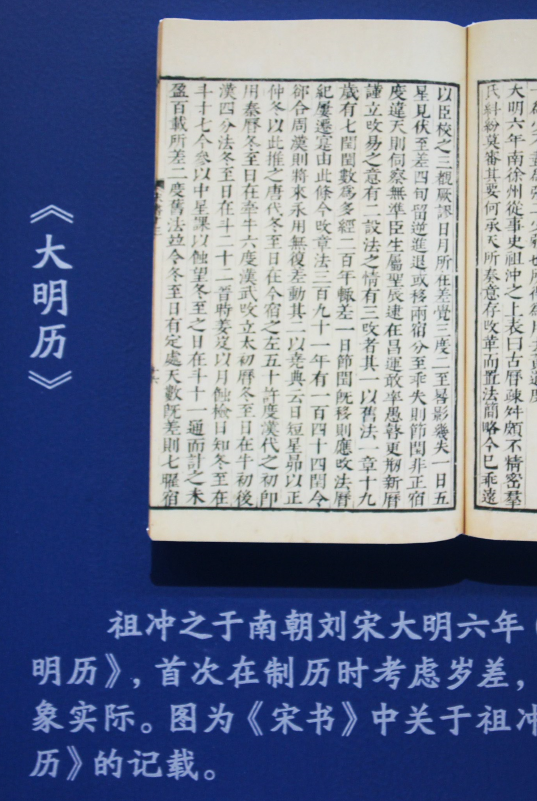 《大明历》
大明六年南徐州從事史祖沖之上表曰古曆疎舛頗不精密羣
氏糾紛莫審其要何承天所奏意存改革而置法簡略今已乖遠
以臣校之三覩厥謬日月所在差覺三度二至晷影幾失一日五
星見伏至差四旬留逆進退或移兩宿分至乖失則節閏非正宿
度違天則伺察無準臣生屬聖辰逮在昌運敢率愚瞽更刱新曆
謹立改易之意有二設法之情有三改者其一以舊法一章十九
歲有七閏閏數爲多經二百年輒差一日節閏旣移則應改法曆
紀屢遷寔由此條今改章法三百九十一年有一百四十四閏令
却合周漢則將來永用無復差動其二以堯典云日短星昴以正
仲冬以此推之唐代冬至日在今宿之左五十許度漢代之初卽
用秦曆冬至日在牽牛六度漢武改立太初曆冬至日在牛初後
漢四分法冬至日在斗二十二晉時姜岌以月蝕檢日知冬至在
斗十七今參以中星課以蝕望冬至之日在斗十一通而計之未
盈百載所差二度舊法竝令冬至日有定處天數旣差則七曜宿
祖冲之于南朝刘宋大明六年
明历》，首次在制历时考虑岁差，
象实际。图为《宋书》中关于祖冲
历》的记载。